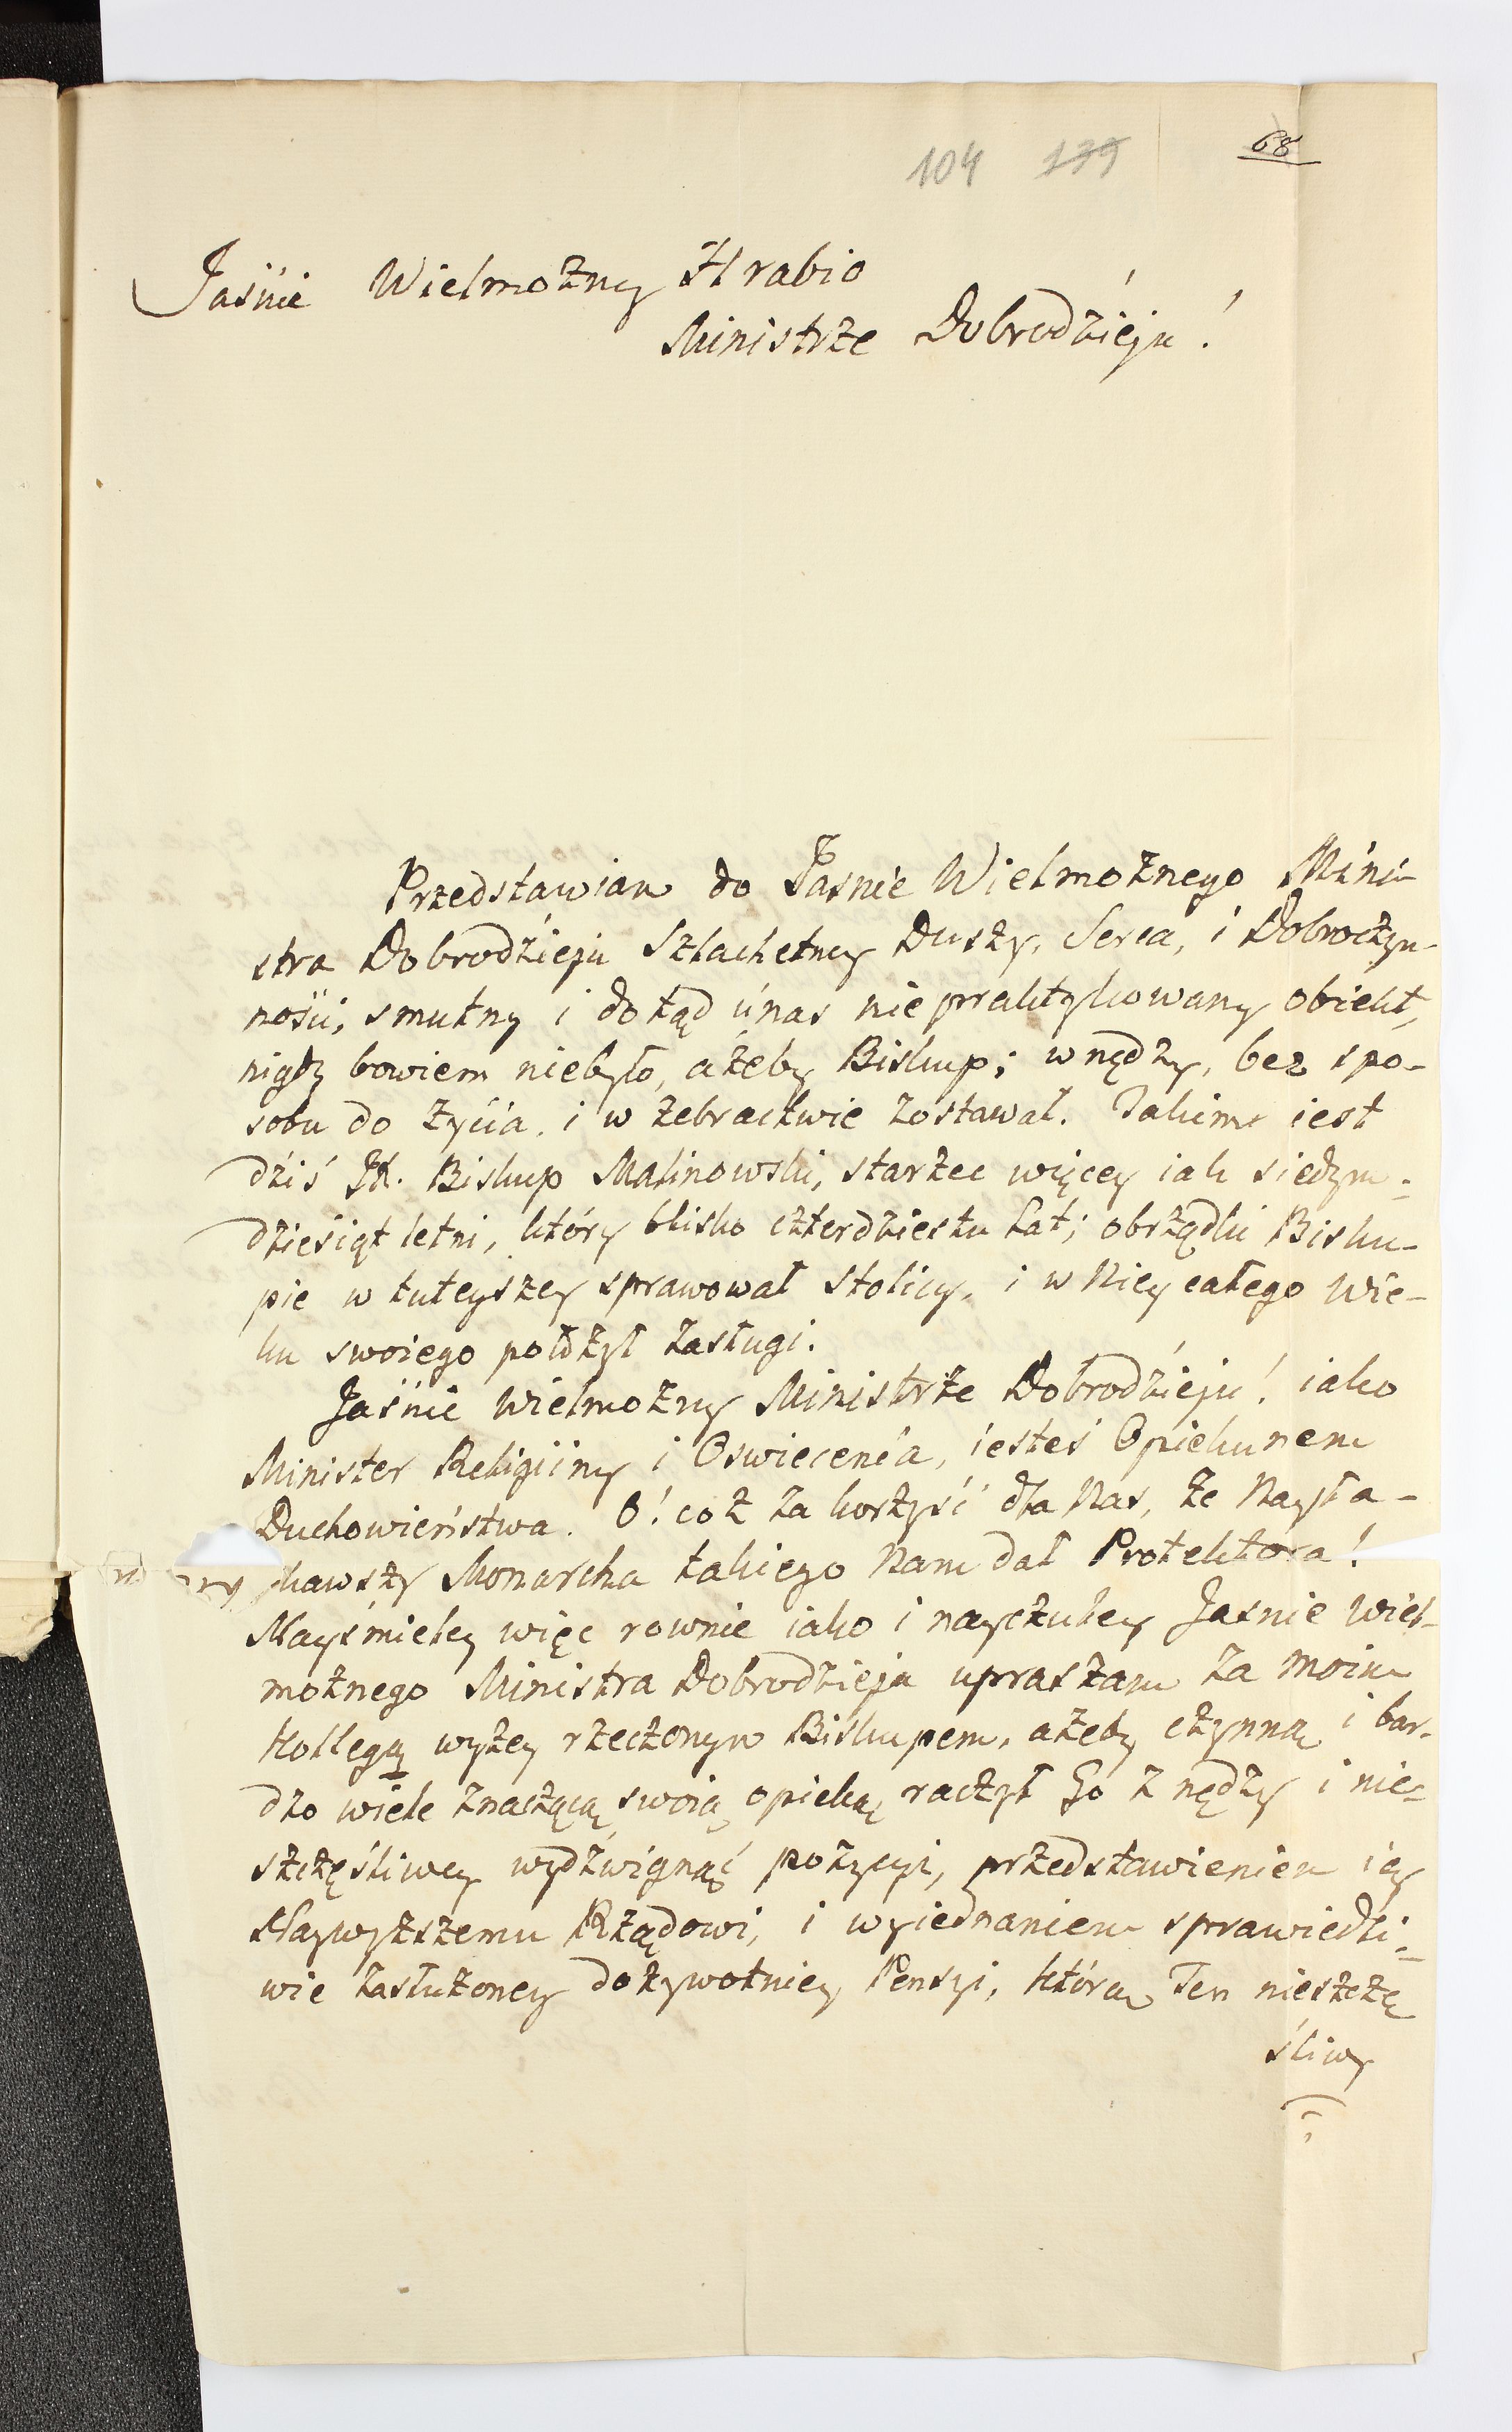 104 139 68
Jaśnie Wielmożny Hrabio
Ministrze Dobrodzieju!
Przedstawiam do Jasnie Wielmożnego Mini-
stra Dobrodzieju Szlachetney Duszy, Serca, i Dobroczyn-
nośći, smutny i dotąd únas nie praktykowany obiekt,
nigdy bowiem niebyło, ażeby Biskup; w nędzy, bez spo-
sobu do życia, i w żebractwie zostawał. Takim iest
dźiś JX. Biskup Malinowski, starzec więcey iak siedym-
dziesiąt letni, który blisko czterdziestu lat; obrządki Bisku-
pie w tuteyszey sprawował stolicy, i w Niey całego wie-
ku swoiego położył zasługi.
Jaśnie Wielmożny Ministrze Dobrodzieju! iako
Minister Religiiny i Oswiecenia, iesteś Opiekunem
Duchowieństwa. O! coż za korzyść dla Nas, że Nayła-
skawszy Monarcha takiego Nam dał Protektora!
Nayśmieley więc rownie iako i nayczuley Jasnie Wiel-
możnego Ministra Dobrodzieja upraszam za moim
Kollegą wyżey rzeczonym Biskupem, ażeby czynną i bar-
dzo wiele znaczącą swoią opieką raczył Go z nędzy i nie-
szczęśliwey wydźwignąć pozycyi, przedstawieniem iey
Naywyższemu Rządowi, i wyiednaniem sprawiedli-
wie zasłużoney dożywotniey Pensyi, którą Ten nieszczę
śliwy